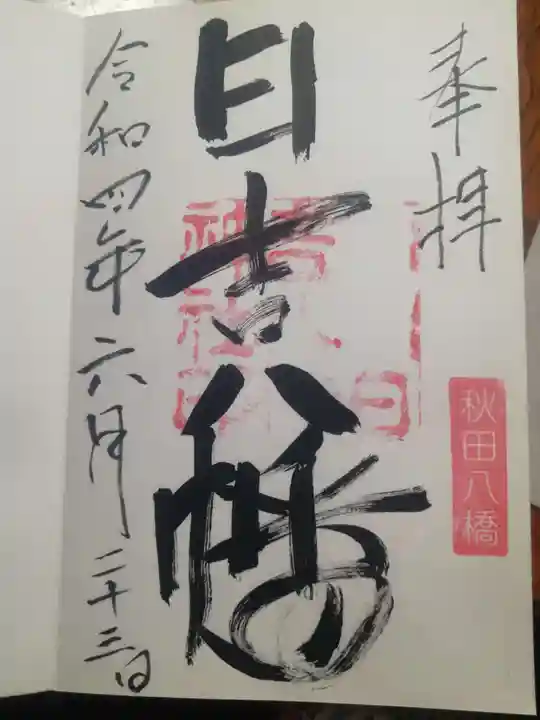 奉拝
秋田八橋
日吉八幡
令和四年六月二十三日